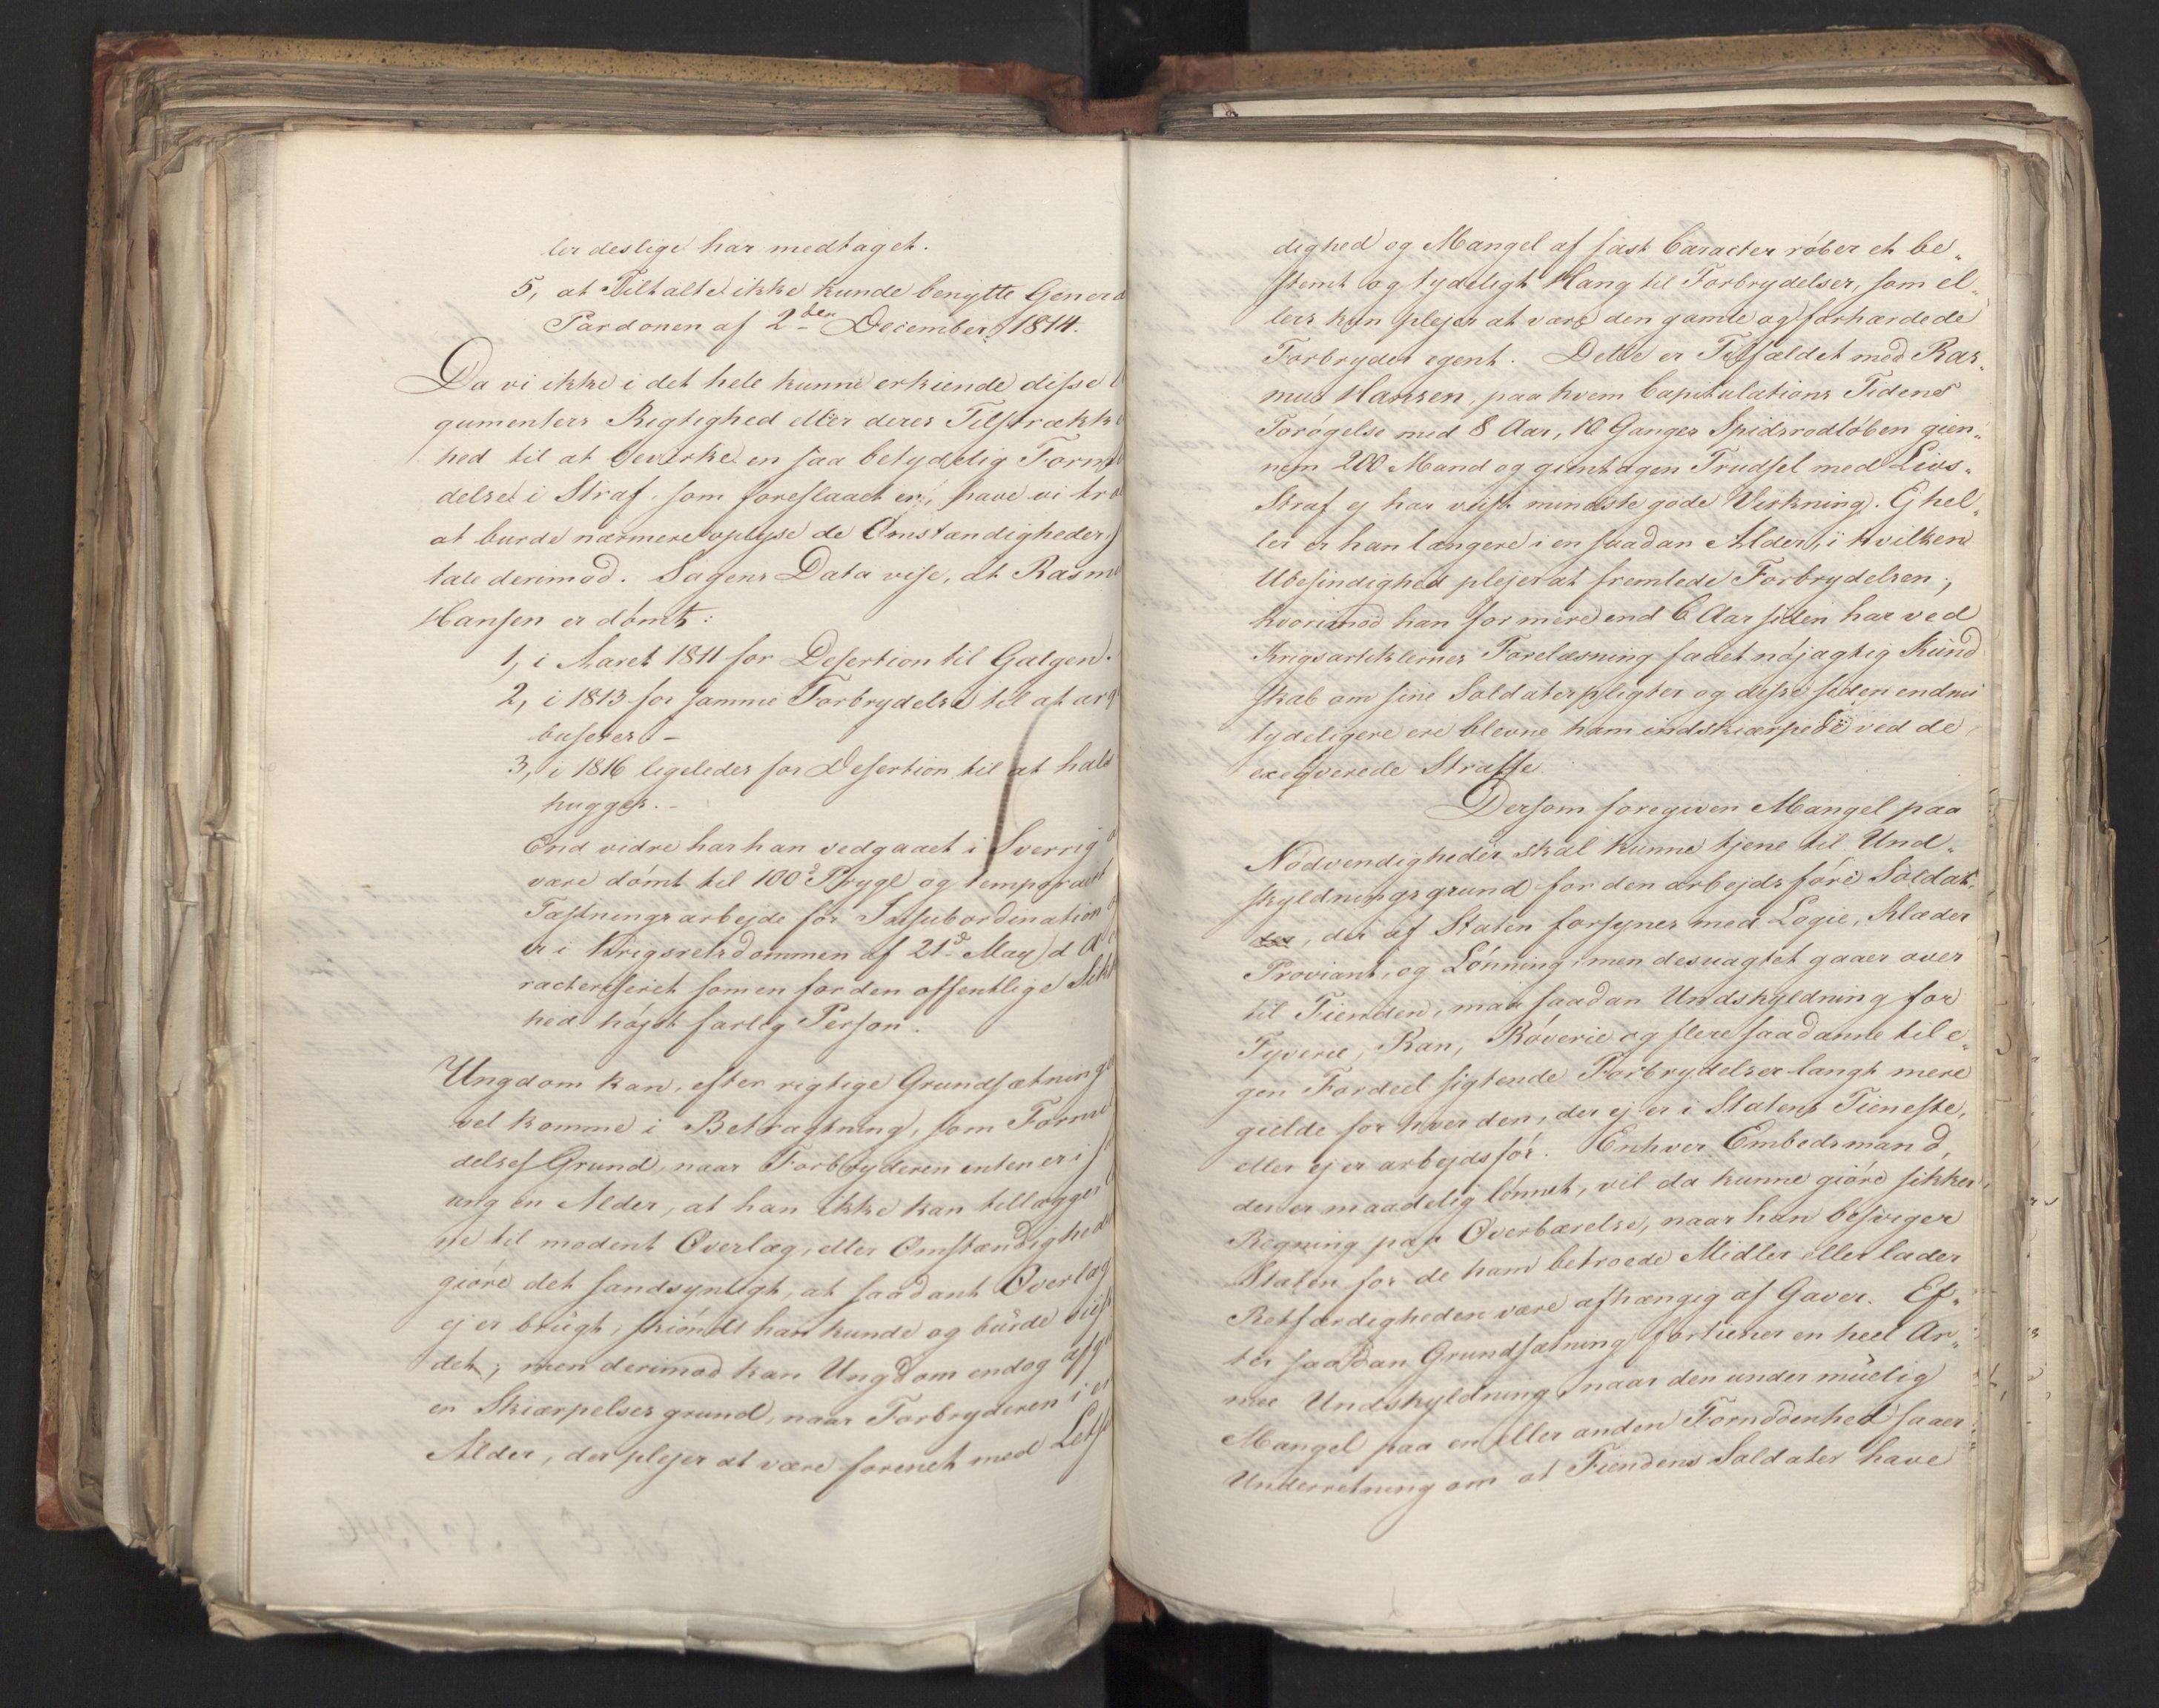 ler deslige har medtaget.
5, at Tiltalte ikke kunde benytte Genera
Pardonen af 2den December 1814.
Da vi ikke i det hele kunne erkiende disse
gumenters Rigtighed eller deres Tilstrække
hed til at bevirke en saa betydelig Formil
delse i Straf, som foreslaaet er, have vi tro
at burde nærmere oplyse de Omstændigheder,
tale derimod. Sagens Data vise, at Rasmu
Hansen er dømt:
1, i Aaret 1811 for Desertion til Galgen.
2, i 1813 for samme Forbrydelse til at arq
buseres. -
3, i 1816 ligeledes for Desertion til at hals
hugges. -
End vidre har han vedgaaet i Sverrig
være dømt til 100de Prygl og temporairt
Fæstningsarbejde for Insubordination
er i Krigsretsdommen af 21de May d. A.
racteriseret som en for den offentlige Sik
hed højst farlig Person.
Ungdom kan, efter rigtige Grundsætninger
vel komme i Betragtning, som Formil
delses Grund, naar Forbryderen enten er i
ung en Alder, at han ikke kan tillægges
ne til modent Overlæg, eller Omstændighede
giøre det sandsynligt, at saadant Overlæg
ej er brugt, skiøndt han kunde og burde
det; men derimod kan Ungdom endog afgi
en Skiærpelses grund, naar Forbryderen i en
Alder, der plejer at være forenet med Letsi
dighed og Mangel af fast Caracter røber et be„
stemt og tydeligt Hang til Forbrydelser, som el„
lers kun plejer at være den gamle og forhærdede
Forbryder egent. Dette er Tilfældet med Ras„
mus Hansen, paa hvem Capitulations Tidens
Forøgelse med 8 Aar, 10 Ganges Spidsrodløben gien„
nem 200 Mand og gientagen Trudsel med Livs„
Straf ej har viist mindste gode Virkning. Ej hel„
ler er han længere i en saadan Alder, i hvilken
Ubesindighed plejer at fremlede Forbrydelsen;
hvorimod han for mere end 6 Aar siden har ved
Krigsartiklernes Forelæsning faaet nøjagtig Kund
skab om sine Soldaterpligter og disse siden endnu
tydeligere ere blevne ham indskiærpede ved de
exeqverede Straffe.
Dersom foregiven Mangel paa
Nødvendigheder skal kunne tjene til Und„
skyldningsgrund for den arbejdsføre Soldat,
der, der af Staten forsynes med Logie, Klæder
Proviant, og Lønning, men desuagtet gaaer over
til Fienden, maa saadan Undskyldning for
Tyverie, Ran, Røverie og flere saadanne til e„
gen Fordeel sigtende Forbrydelser langt mere
gielde for hver den, der ej er i Statens Tieneste,
eller ej er arbejdsfør. Enhver Embedsmand,
der er maadelig lønnet, vil da kunne giøre sikker
Regning paa Overbærelse, naar han besviger
Staten for de ham betroede Midler eller lader
Retfærdigheden være afhængig af Gaver. Ef„
ter saadan Grundsætning fortiener en heel Ar„
mee Undskyldning, naar den under muelig
Mangel paa en eller anden Fornødenhed faaer
Underretning om at Fiendens Soldater have